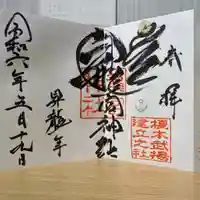 榎本武揚
建立之社
龍宮神社
昇龍年
令和六年五月十九日